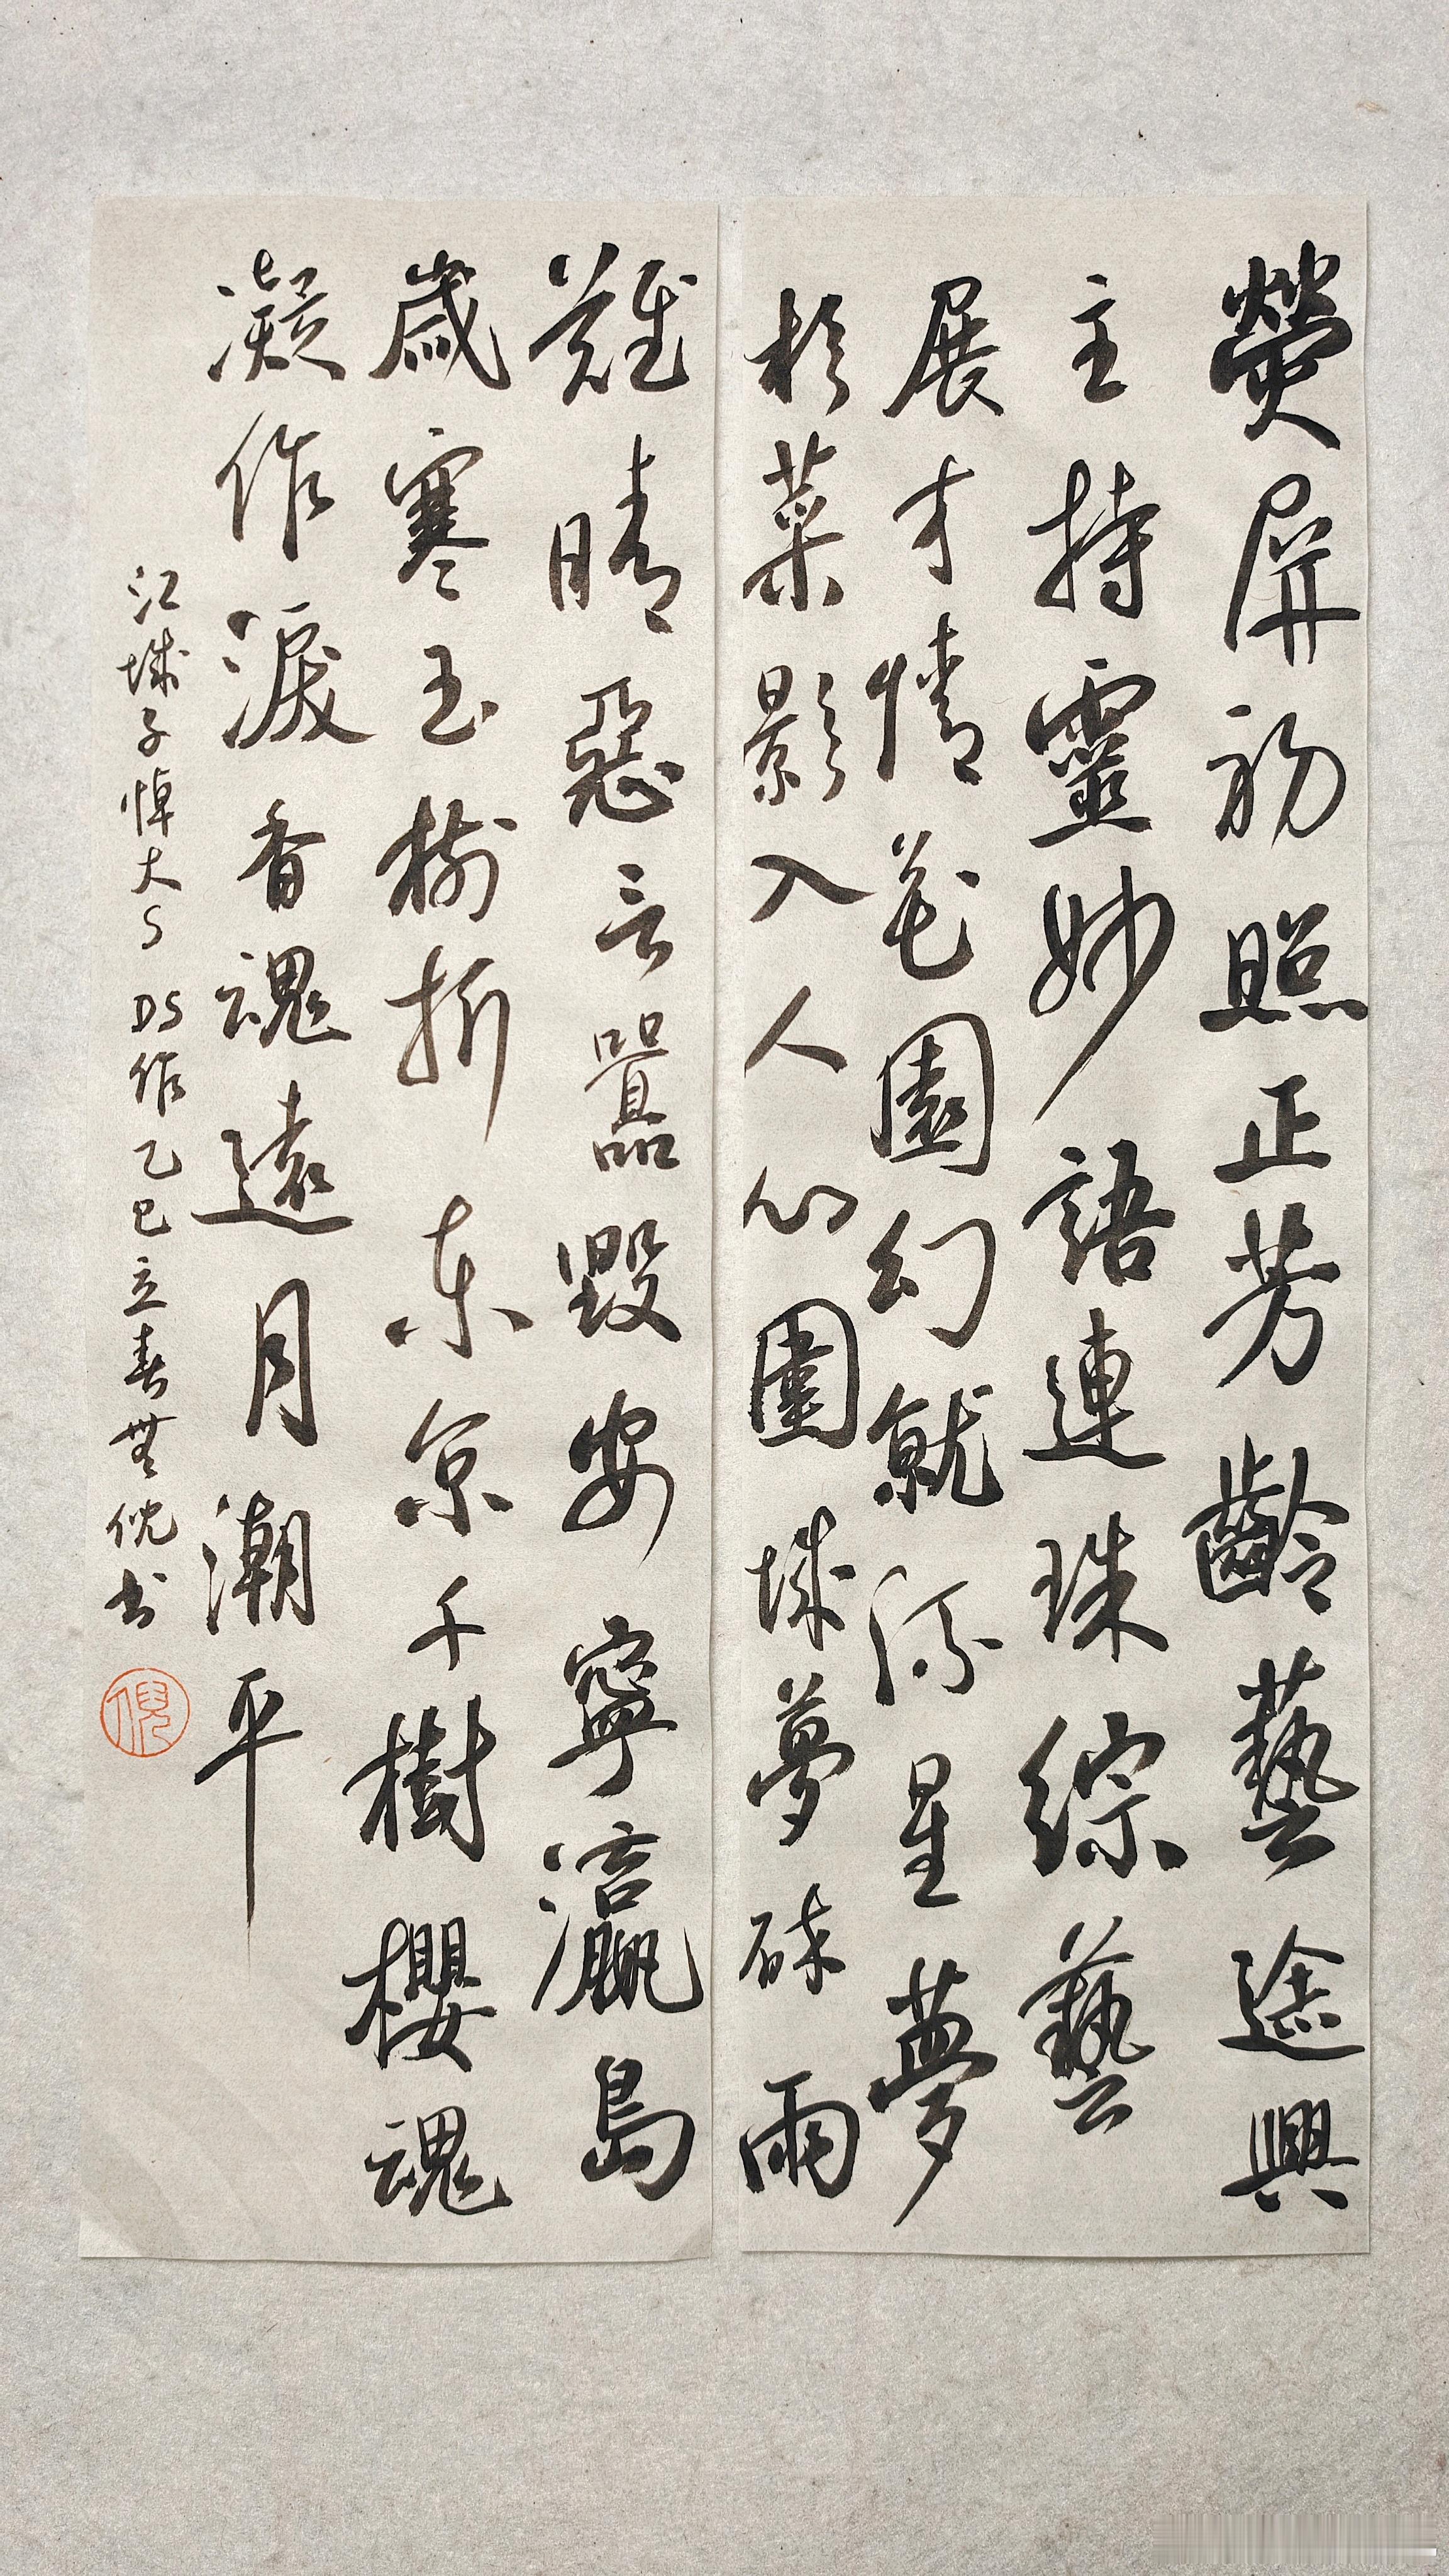 熒屏初照正芳齡藝途興
主持靈妙語連珠綜藝
展才情花園幻就流星夢
杉菜影入人心圍城夢碎雨
難晴惡言囂毀安寧瀛島
歲寒玉樹折东京千樹櫻魂
凝作淚香魂遠月潮平
江城子悼大S DS作乙巳立春無倪书
倪